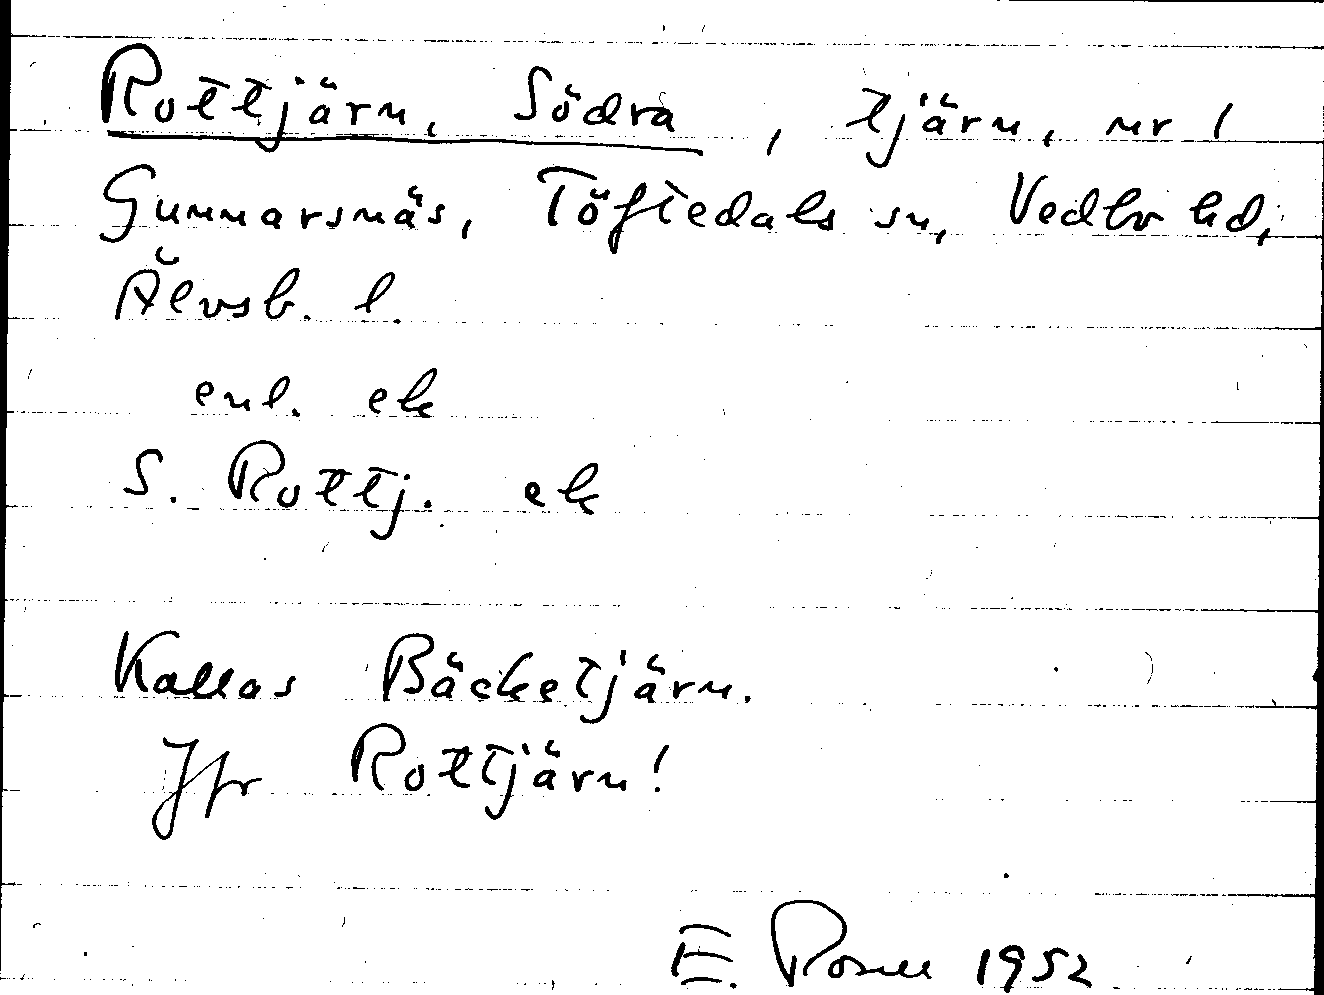 Rottjärn, Södra, tjärn, nr 1
Gunnarsnäs, Töftedals sn, Vedbo hd,
Älvsb. l.
enl. ek
S. Rottj. ek
Kallas Bäcketjärn.
Jfr Rottjärn!
E. Rosell 1952